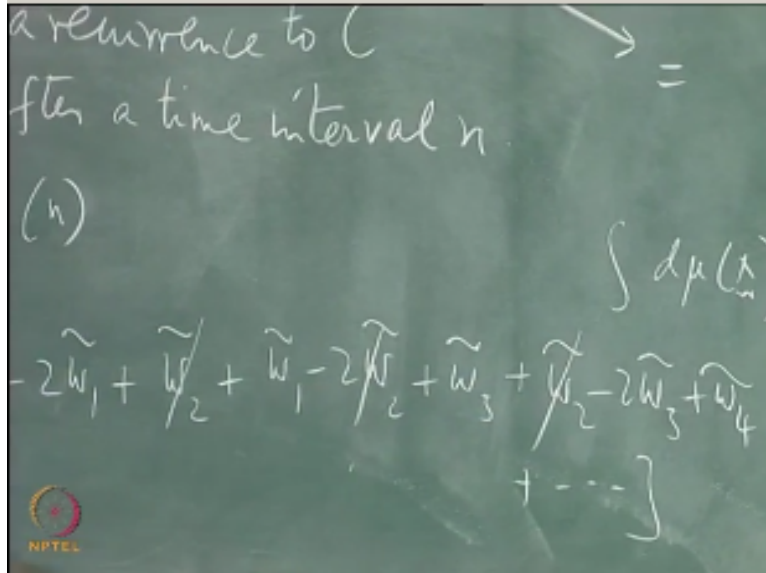 a recurrence to C
fter a time interval n.
=
(n)
∫ dμ(x
- 2w̃₁ + w̃₂ + w̃₁ - 2w̃₂ + w̃₃ + w̃₂ - 2w̃₃ + w̃₄
+ ----]
NPTEL